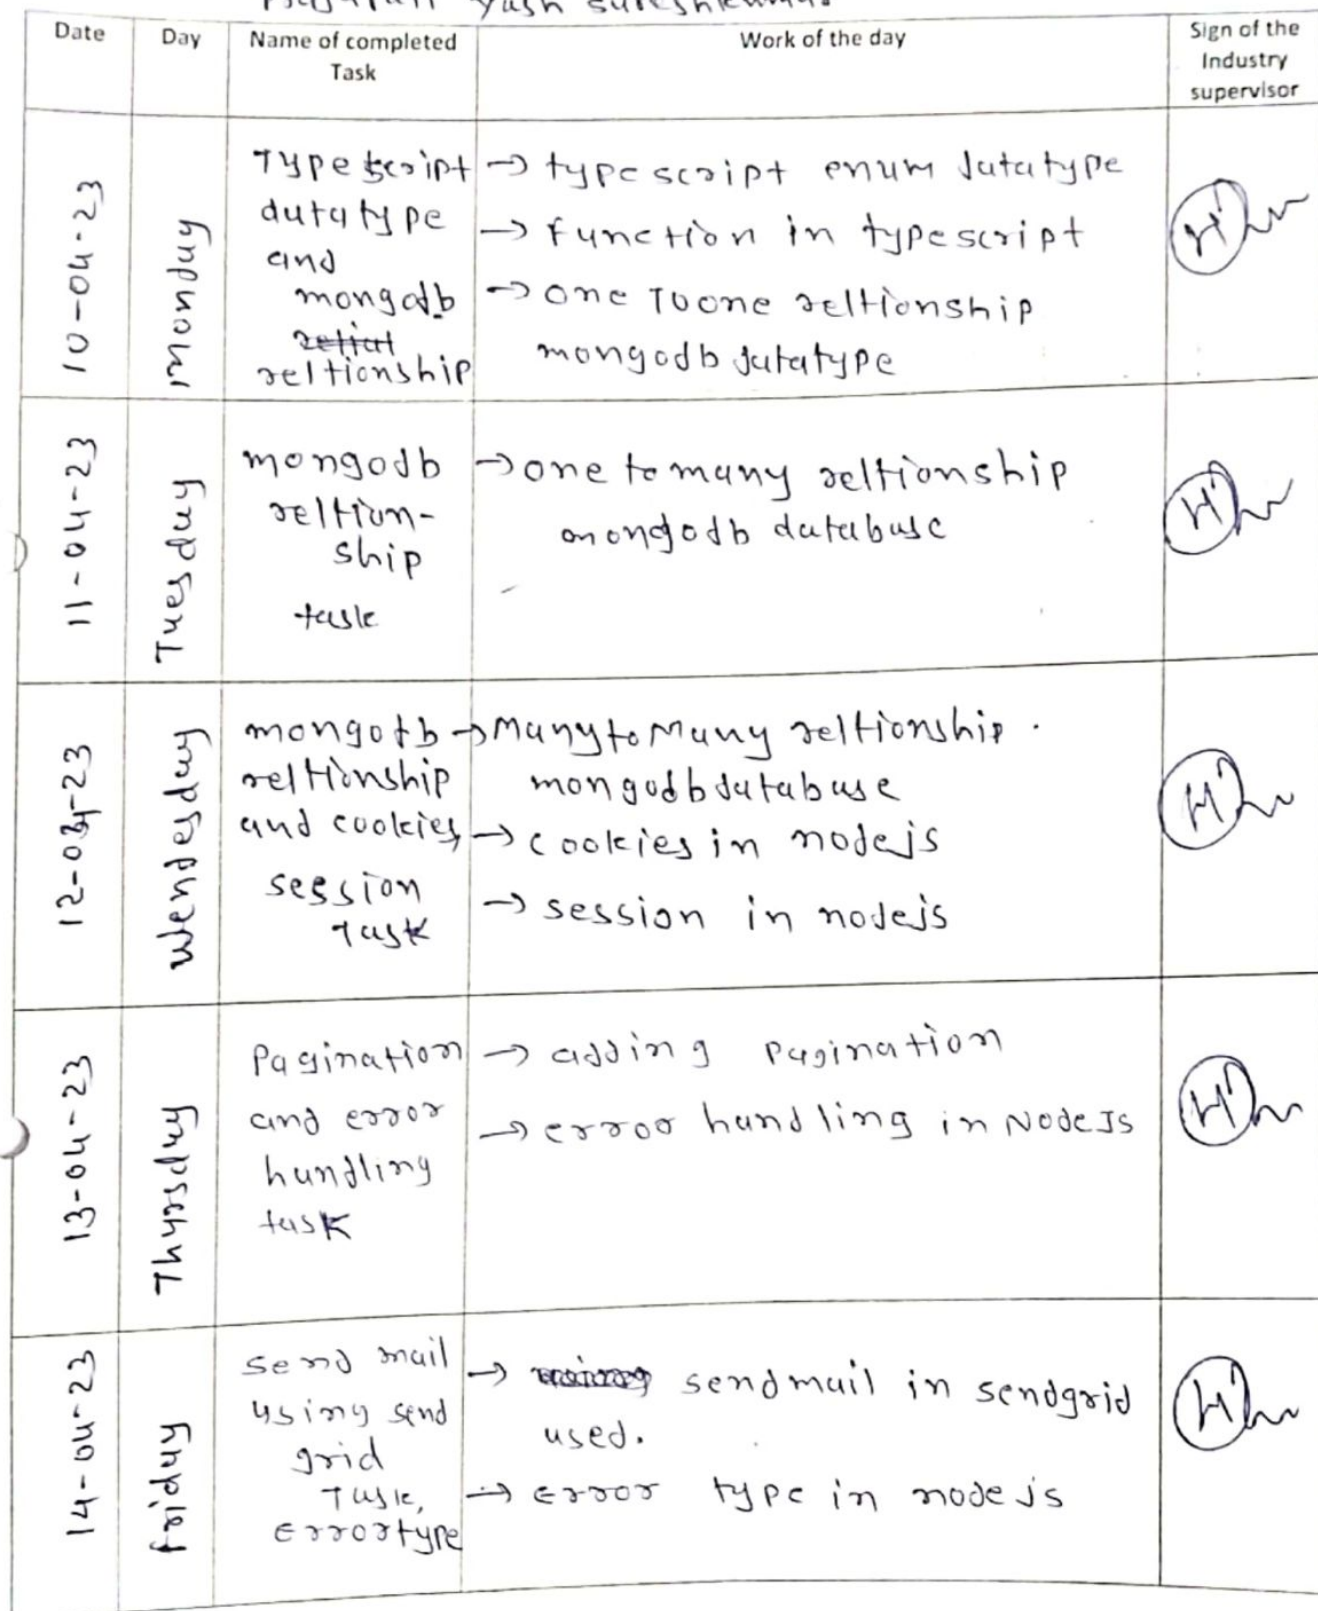 yash sureshkumar
Date
Day
Name of completed
Task
Work of the day
Sign of the
Industry
supervisor
10-04-23
monday
Type script
datatype
and
mongodb
reltionship
→ typescript enum datatype
→ function in typescript
→ one To one reltionship
mongodb datatype
11-04-23
Tuesday
mongodb
reltion-
ship
task
→ one to many reltionship
mongodb database
12-04-23
Wendesday
mongodb
reltionship
and cookies,
session
Task
→ Many to Many reltionship.
mongodb database
→ cookies in nodejs
→ session in nodejs
13-04-23
Thursday
Pagination
and error
handling
task
→ adding Pagination
→ error handling in NodeJs
14-04-23
friday
send mail
using send
grid
Task,
Errortype
→ sendmail in sendgrid
used.
→ Error type in node js